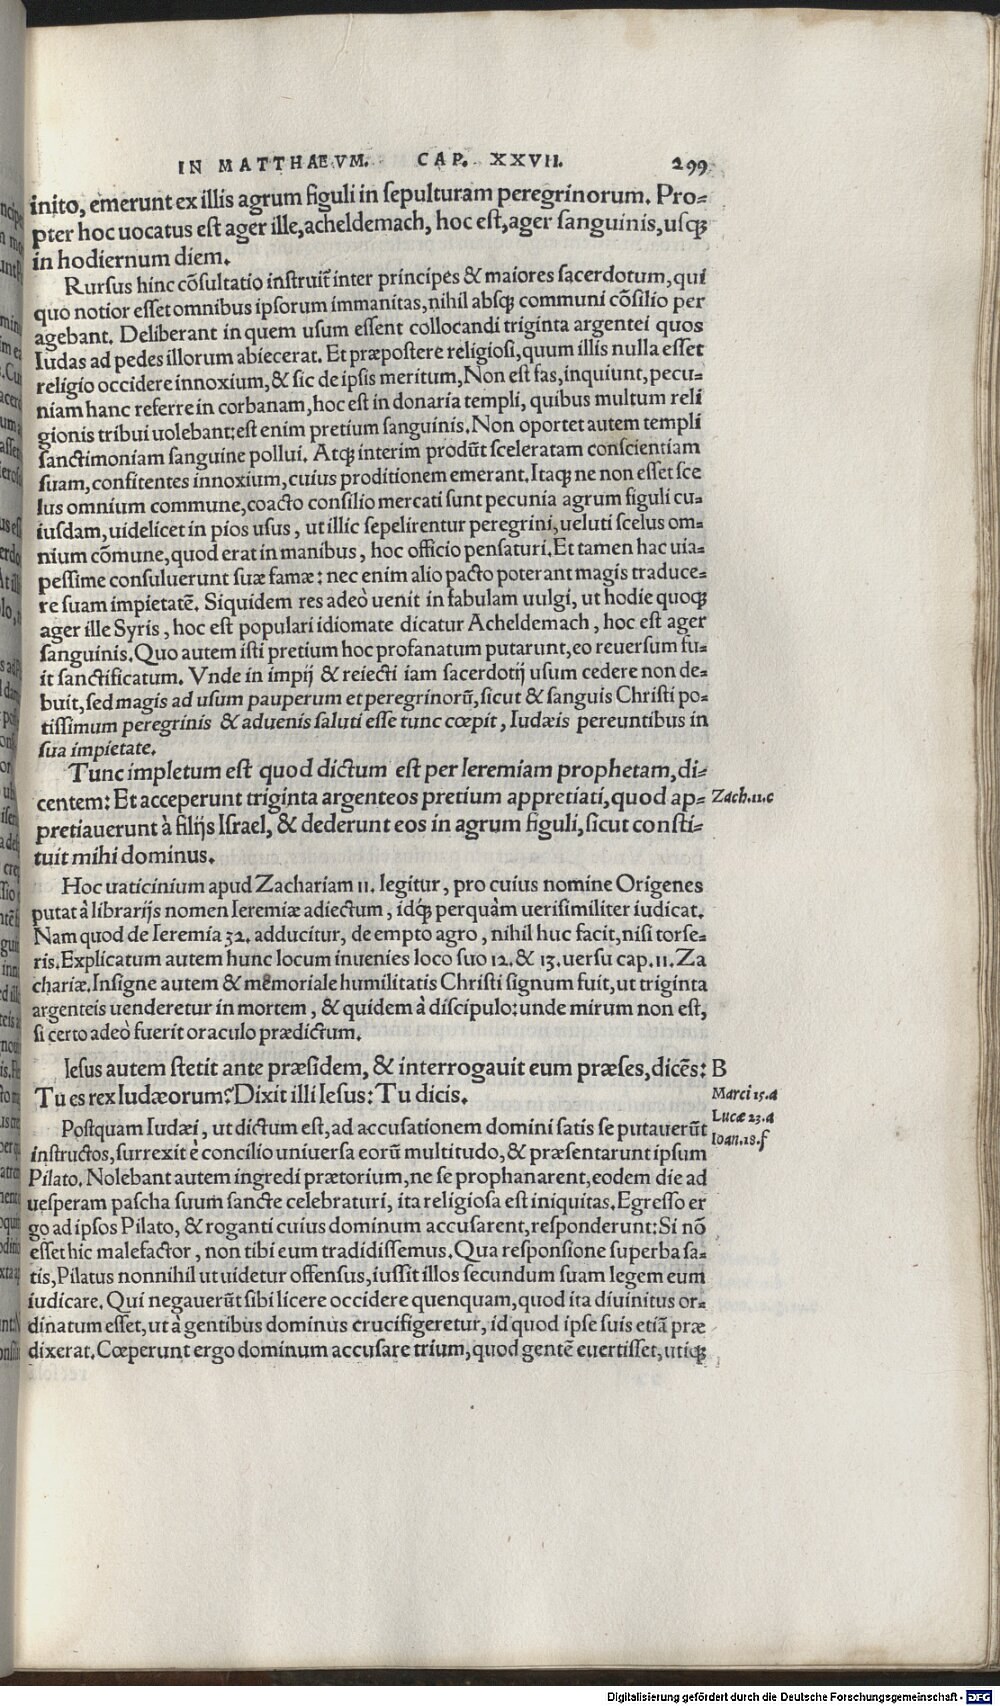 IN MATTHAEVM. CAP. XXVII. 299
inito, emerunt ex illis agrum figuli in ſepulturam peregrinorum. Pro=
pter hoc uocatus eſt ager ille, acheldemach, hoc eſt, ager ſanguinis, uſq́;
in hodiernum diem.
Rurſus hinc cõſultatio inſtruit̃ inter principes & maiores ſacerdotum, qui
quo notior eſſet omnibus ipſorum immanitas, nihil abſq́; communi cõſilio per
agebant. Deliberant in quem uſum eſſent collocandi triginta argentei quos
Iudas ad pedes illorum abiecerat. Et præpoſtere religioſi, quum illis nulla eſſet
religio occidere innoxium, & ſic de ipſis meritum, Non eſt fas, inquiunt, pecu=
niam hanc referre in corbanam, hoc eſt in donaria templi, quibus multum reli
gionis tribui uolebant: eſt enim pretium ſanguinis. Non oportet autem templi
ſanctimoniam ſanguine pollui. Atq́; interim produ̅t ſceleratam conſcientiam
ſuam, confitentes innoxium, cuius proditionem emerant. Itaq́; ne non eſſet ſce
lus omnium commune, coacto conſilio mercati ſunt pecunia agrum figuli cu=
iuſdam, uidelicet in pios uſus, ut illic ſepelirentur peregrini, ueluti ſcelus om=
nium cõmune, quod erat in manibus, hoc officio penſaturi. Et tamen hac uia=
peſſime conſuluerunt ſuæ famæ: nec enim alio pacto poterant magis traduce=
re ſuam impietatẽ. Siquidem res adeò uenit in fabulam uulgi, ut hodie quoq́;
ager ille Syris, hoc eſt populari idiomate dicatur Acheldemach, hoc eſt ager
ſanguinis. Quo autem iſti pretium hoc profanatum putarunt, eo reuerſum fu=
it ſanctificatum. Vnde in impij & reiecti iam ſacerdotij uſum cedere non de=
buit, ſed magis ad uſum pauperum et peregrinorũ, ſicut & ſanguis Chriſti po=
tiſſimum peregrinis & aduenis ſaluti eſſe tunc cœpit, Iudæis pereuntibus in
ſua impietate.
Tunc impletum eſt quod dictum eſt per Ieremiam prophetam, di=
centem: Et acceperunt triginta argenteos pretium appretiati, quod ap= Zach.11.c
pretiauerunt à filijs Iſrael, & dederunt eos in agrum figuli, ſicut conſti=
tuit mihi dominus.
Hoc uaticinium apud Zachariam 11. legitur, pro cuius nomine Origenes
putat à librarijs nomen Ieremiæ adiectum, idq́; perquàm ueriſimiliter iudicat.
Nam quod de Ieremia 32. adducitur, de empto agro, nihil huc facit, niſi torſe=
ris. Explicatum autem hunc locum inuenies loco ſuo 12. & 13. uerſu cap. 11. Za
chariæ. Inſigne autem & memoriale humilitatis Chriſti ſignum fuit, ut triginta
argenteis uenderetur in mortem, & quidem à diſcipulo: unde mirum non eſt,
ſi certo adeò fuerit oraculo prædictum.
Ieſus autem ſtetit ante præſidem, & interrogauit eum præſes, dicẽs: B
Tu es rex Iudæorum? Dixit illi Ieſus: Tu dicis. Marci 15.a
Lucæ 23.a
Poſtquam Iudæi, ut dictum eſt, ad accuſationem domini ſatis ſe putauerũt Ioan.18.f
inſtructos, ſurrexit è concilio uniuerſa eorũ multitudo, & præſentarunt ipſum
Pilato. Nolebant autem ingredi prætorium, ne ſe prophanarent, eodem die ad
ueſperam paſcha ſuum ſancte celebraturi, ita religioſa eſt iniquitas. Egreſſo er
go ad ipſos Pilato, & roganti cuius dominum accuſarent, reſponderunt: Si nõ
eſſet hic malefactor, non tibi eum tradidiſſemus. Qua reſponſione ſuperba ſa=
tis, Pilatus nonnihil ut uidetur offenſus, iuſſit illos ſecundum ſuam legem eum
iudicare. Qui negauerũt ſibi licere occidere quenquam, quod ita diuinitus or=
dinatum eſſet, ut à gentibus dominus crucifigeretur, id quod ipſe ſuis etiã præ
dixerat. Cœperunt ergo dominum accuſare trium, quod gentẽ euertiſſet, utiq́;
Digitalisierung gefördert durch die Deutsche Forschungsgemeinschaft - DFG